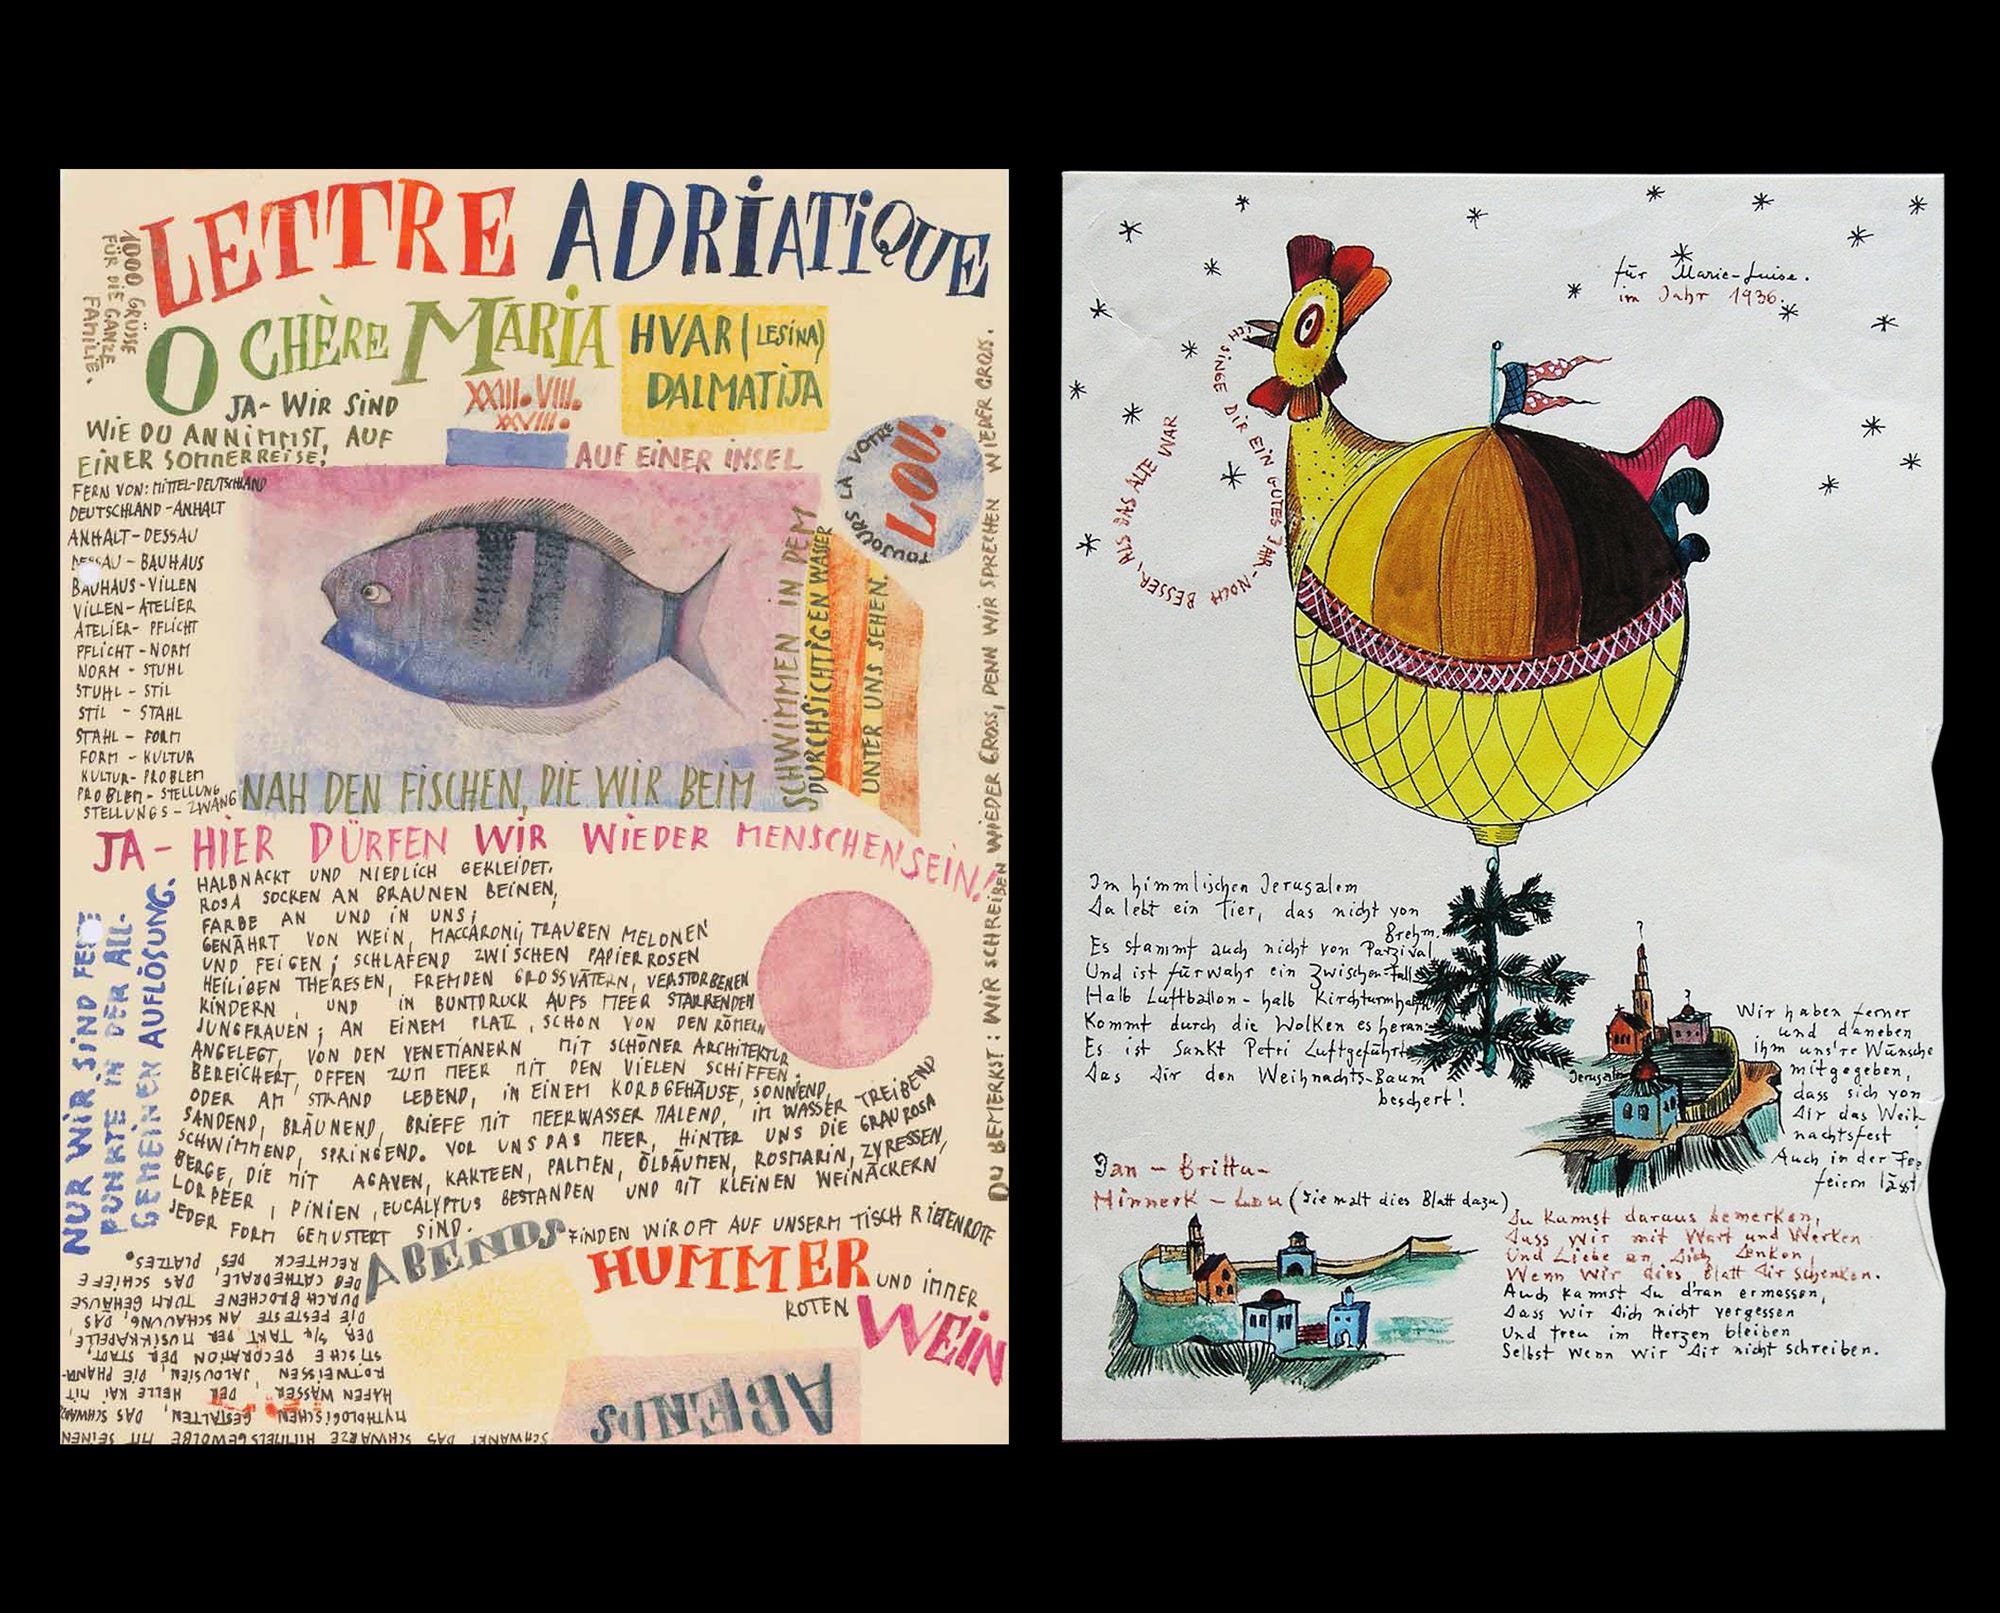 LETTRE ADRIATIQUE
1000 GRÜSSE
FÜR DIE GANZE
FAMILIE.
O CHÈRE MARIA
HVAR (LESINA)
DALMATIJA
XXIII. VIII.
XXVIII.
JA - WIR SIND
WIE DU ANNIMMST, AUF
EINER SOMMERREISE!
AUF EINER INSEL
TOUJOURS LA VOTRE
LOU.
FERN VON: MITTEL-DEUTSCHLAND
DEUTSCHLAND - ANHALT
ANHALT - DESSAU
DESSAU - BAUHAUS
BAUHAUS - VILLEN
VILLEN - ATELIER
ATELIER - PFLICHT
PFLICHT - NORM
NORM - STUHL
STUHL - STIL
STIL - STAHL
STAHL - FORM
FORM - KULTUR
KULTUR - PROBLEM
PROBLEM - STELLUNG
STELLUNGS - ZWANG
NAH DEN FISCHEN, DIE WIR BEIM
SCHWIMMEN IN DEM
DURCHSICHTIGEN WASSER
UNTER UNS SEHEN.
JA - HIER DÜRFEN WIR WIEDER MENSCHENSEIN!
HALBNACKT UND NIEDLICH GEKLEIDET,
ROSA SOCKEN AN BRAUNEN BEINEN,
FARBE AN UND IN UNS;
GENÄHRT VON WEIN, MACCARONI, TRAUBEN MELONEN
UND FEIGEN; SCHLAFEND ZWISCHEN PAPIERROSEN
HEILIGEN THERESEN, FREMDEN GROSSVÄTERN, VERSTORBENEN
KINDERN, UND IN BUNTDRUCK AUFS MEER STARRENDEN
JUNGFRAUEN; AN EINEM PLATZ, SCHON VON DEN RÖMERN
ANGELEGT, VON DEN VENETIANERN MIT SCHÖNER ARCHITEKTUR
BEREICHERT, OFFEN ZUM MEER MIT DEN VIELEN SCHIFFEN.
ODER AM STRAND LEBEND, IN EINEM KORBGEHÄUSE, SONNEND,
SANDEND, BRÄUNEND, BRIEFE MIT MEERWASSER MALEND, IM WASSER TREIBEND
SCHWIMMEND, SPRINGEND. VOR UNS DAS MEER, HINTER UNS DIE GRAUROSA
BERGE, DIE MIT AGAVEN, KAKTEEN, PALMEN, ÖLBÄUMEN, ROSMARIN, ZYRESSEN,
LORPEER, PINIEN, EUCALYPTUS BESTANDEN UND MIT KLEINEN WEINÄCKERN
JEDER FORM GEMUSTERT SIND.
NUR WIR SIND FESTE
PUNKTE IN DER ALL-
GEMEINEN AUFLÖSUNG.
DU BEMERKST: WIR SCHREIBEN WIEDER GROSS, DENN WIR SPRECHEN WIEDER GROSS.
ABENDS FINDEN WIR OFT AUF UNSERM TISCH RIESENROTE
HUMMER UND IMMER
ROTEN WEIN
ABENDS
SCHWANKT DAS SCHWARZE HIMMELSGEWÖLBE MIT SEINEN
MYTHOLOGISCHEN GESTALTEN, DAS SCHWARZE
HAFEN WASSER, DER HELLE KAI MIT
ROTWEISSEN JALOUSIEN, DIE PHANTA-
STISCHE DECORATION DER STADT,
DER 3/4 TAKT DER MUSIKKAPELLE
DIE FESTESTE ANSCHAUUNG, DAS
DURCHBROCHENE TURM GEHÄUSE
DER CATHEDRALE, DAS SCHIEFE
RECHTECK DES PLATZES.
für Marie-Luise.
im Jahr 1936.
ICH SINGE DIR EIN GUTES JAHR - NOCH BESSER, ALS DAS ALTE WAR
Im himmlischen Jerusalem
Da lebt ein Tier, das nicht von
Brehm.
Es stammt auch nicht von Parzival
Und ist fürwahr ein Zwischen-Fall:
Halb Luftballon - halb Kirchturmhahn
Kommt durch die Wolken es heran:
Es ist Sankt Petri Luftgefährt
Das Dir den Weihnachts-Baum
beschert!
Jerusalem
Wir haben ferner
und daneben
ihm uns're Wünsche
mitgegeben,
dass sich von
Dir das Weih-
nachtsfest
Auch in der
feiern lässt
Jan - Britta -
Hinnerk - Lou (die malt dies Blatt dazu)
Du kannst daraus bemerken,
Dass wir mit Wort und Werken
Und Liebe an Dich denken,
Wenn wir dies Blatt Dir schenken.
Auch kannst Du d'ran ermessen,
Dass wir Dich nicht vergessen
Und treu im Herzen bleiben
Selbst wenn wir Dir nicht schreiben.